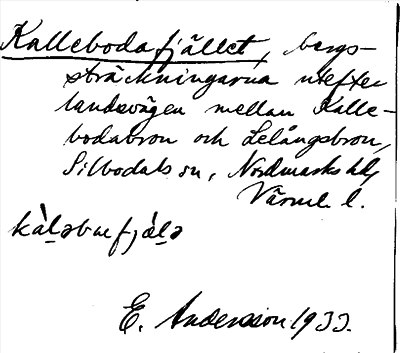 Kallebodafjället, bergs-
sträckningarna utefter
landsvägen mellan Kalle-
bodabron och Lelångsbron,
Silbodals sn, Nordmarks hd,
Värml. l.
kàləbɯfjälə
E. Andersson 1933.